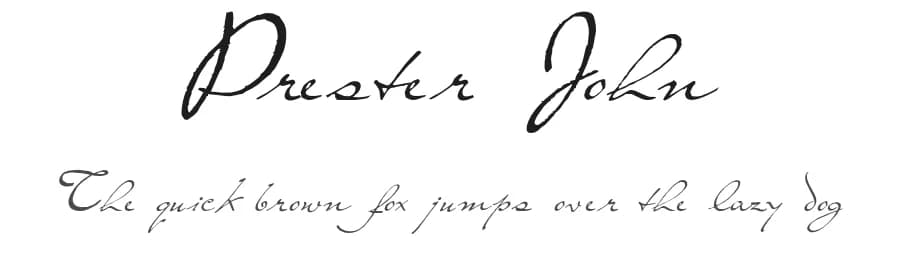 Prester John
The quick brown fox jumps over the lazy dog